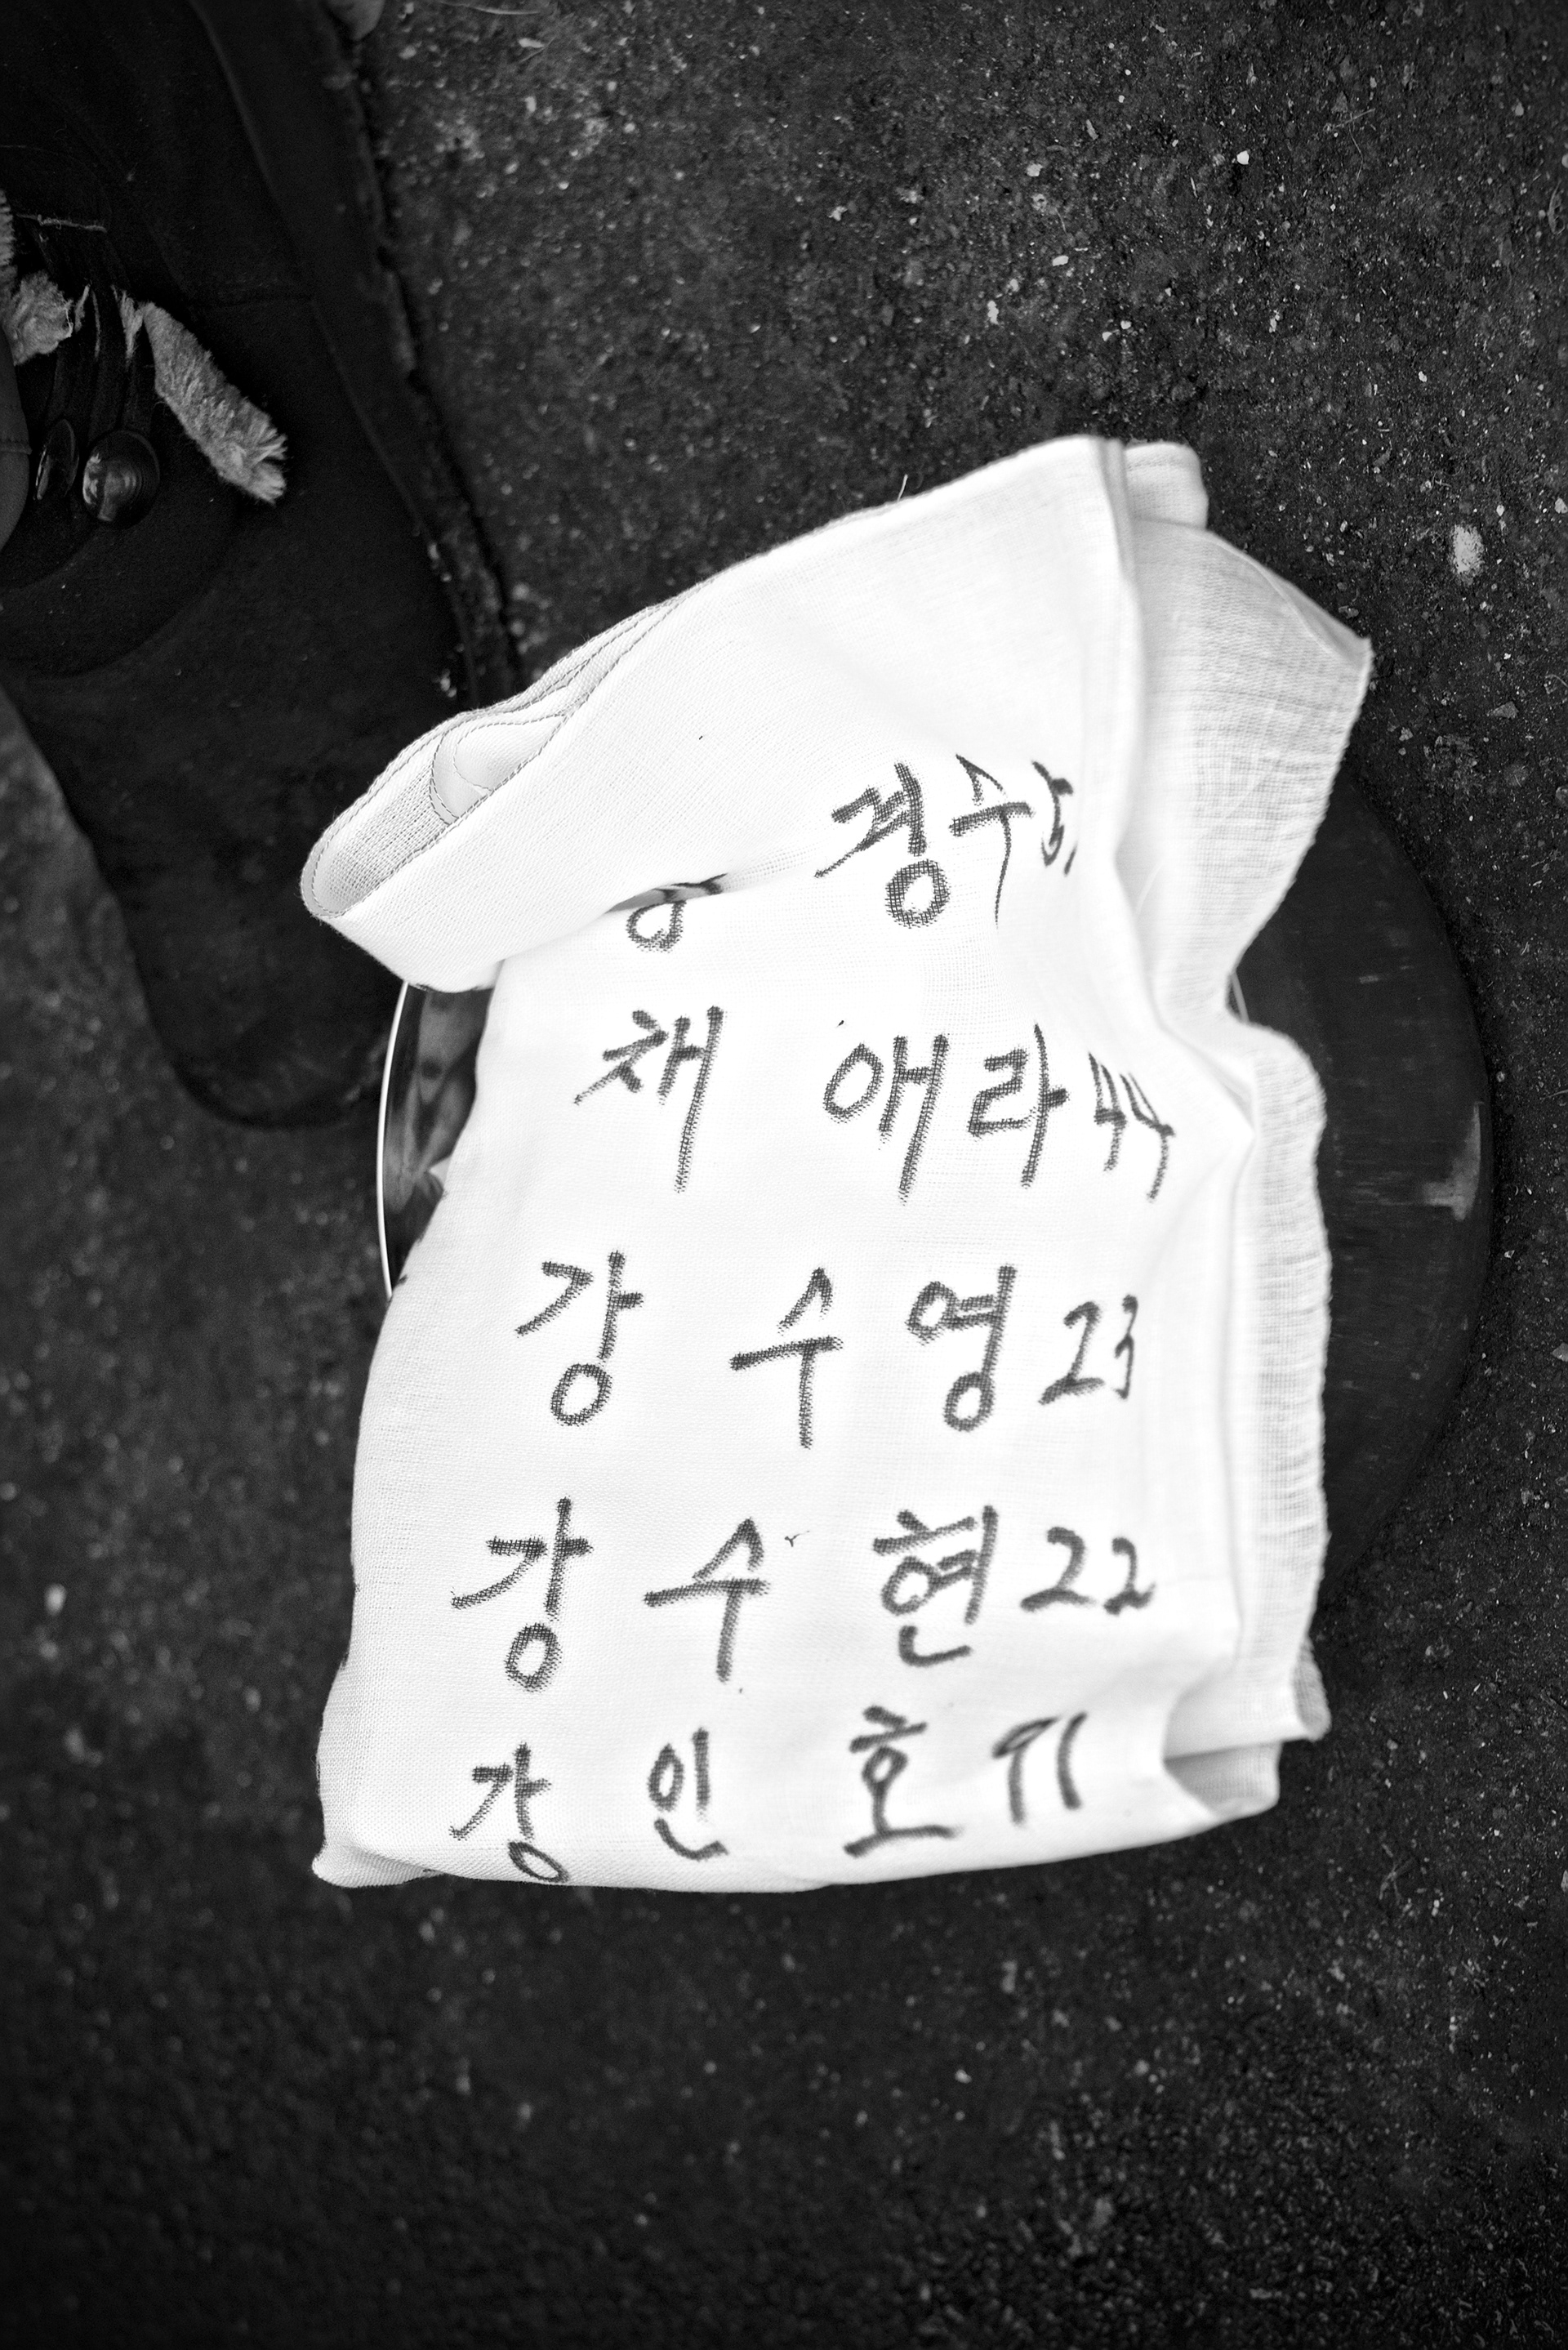 경수
채 애라 44
강 수영 23
강 수현 22
강 인호